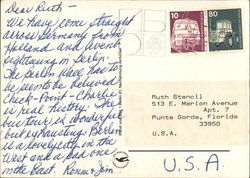 Dear Ruth -
We have come straight
across Germany from
Holland and went
sightseeing in Berlin.
The Berlin wall has to
be seen to be believed
Check-Point-Charlie
is real history. The
bus tour is wonderful
but exhausting. Berlin
is a lovely city in the
West and a sad one
in the East.
10
80
Ruth Stancil
513 E. Marion Avenue
Apt. 7
Punta Gorda, Florida
33950
U.S.A.
U.S.A.